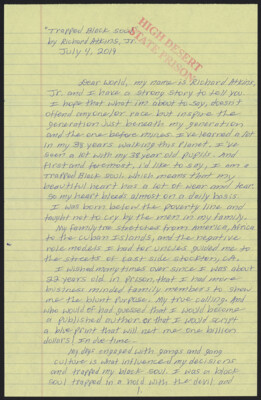 "Trapped Black Soul"
HIGH DESERT
STATE PRISON
by Richard Atkins, Jr.
July 4, 2019
Dear World, my name is Richard Atkins,
Jr. and I have a strong story to tell you
I hope that what I'm about to say, doesn't
offend anyone/or race but inspire the
generation just beneath my generation
and the one before mines. I've learned a lot
in my 38 years walking this planet. I've
seen a lot with my 38 year old pupils. And
first and foremost, I'd like to say, I am a
Trapped Black Soul which means that my
beautiful heart has a lot of wear and tear.
So my heart bleeds almost on a daily basis.
I was born below the poverty line and
taught not to cry by the men in my family.
My family tree stretched from America, Africa
to the Cuban Islands, and the negative
role models I had for uncles guided me to
the streets of east side Stockton, CA.
I wished many times over since I was about
22 years old in prison, that I had more
business minded family members to show
me the blunt purpose. My true calling. And
who would of had guessed that I would become
a published author or that I would script
a blueprint that will net me one billion
dollars in due time.
My days enjoyed with gangs and gang
culture is what influenced my decisions
and trapped my black soul. I was a black
soul trapped in a hold with the devil and
1